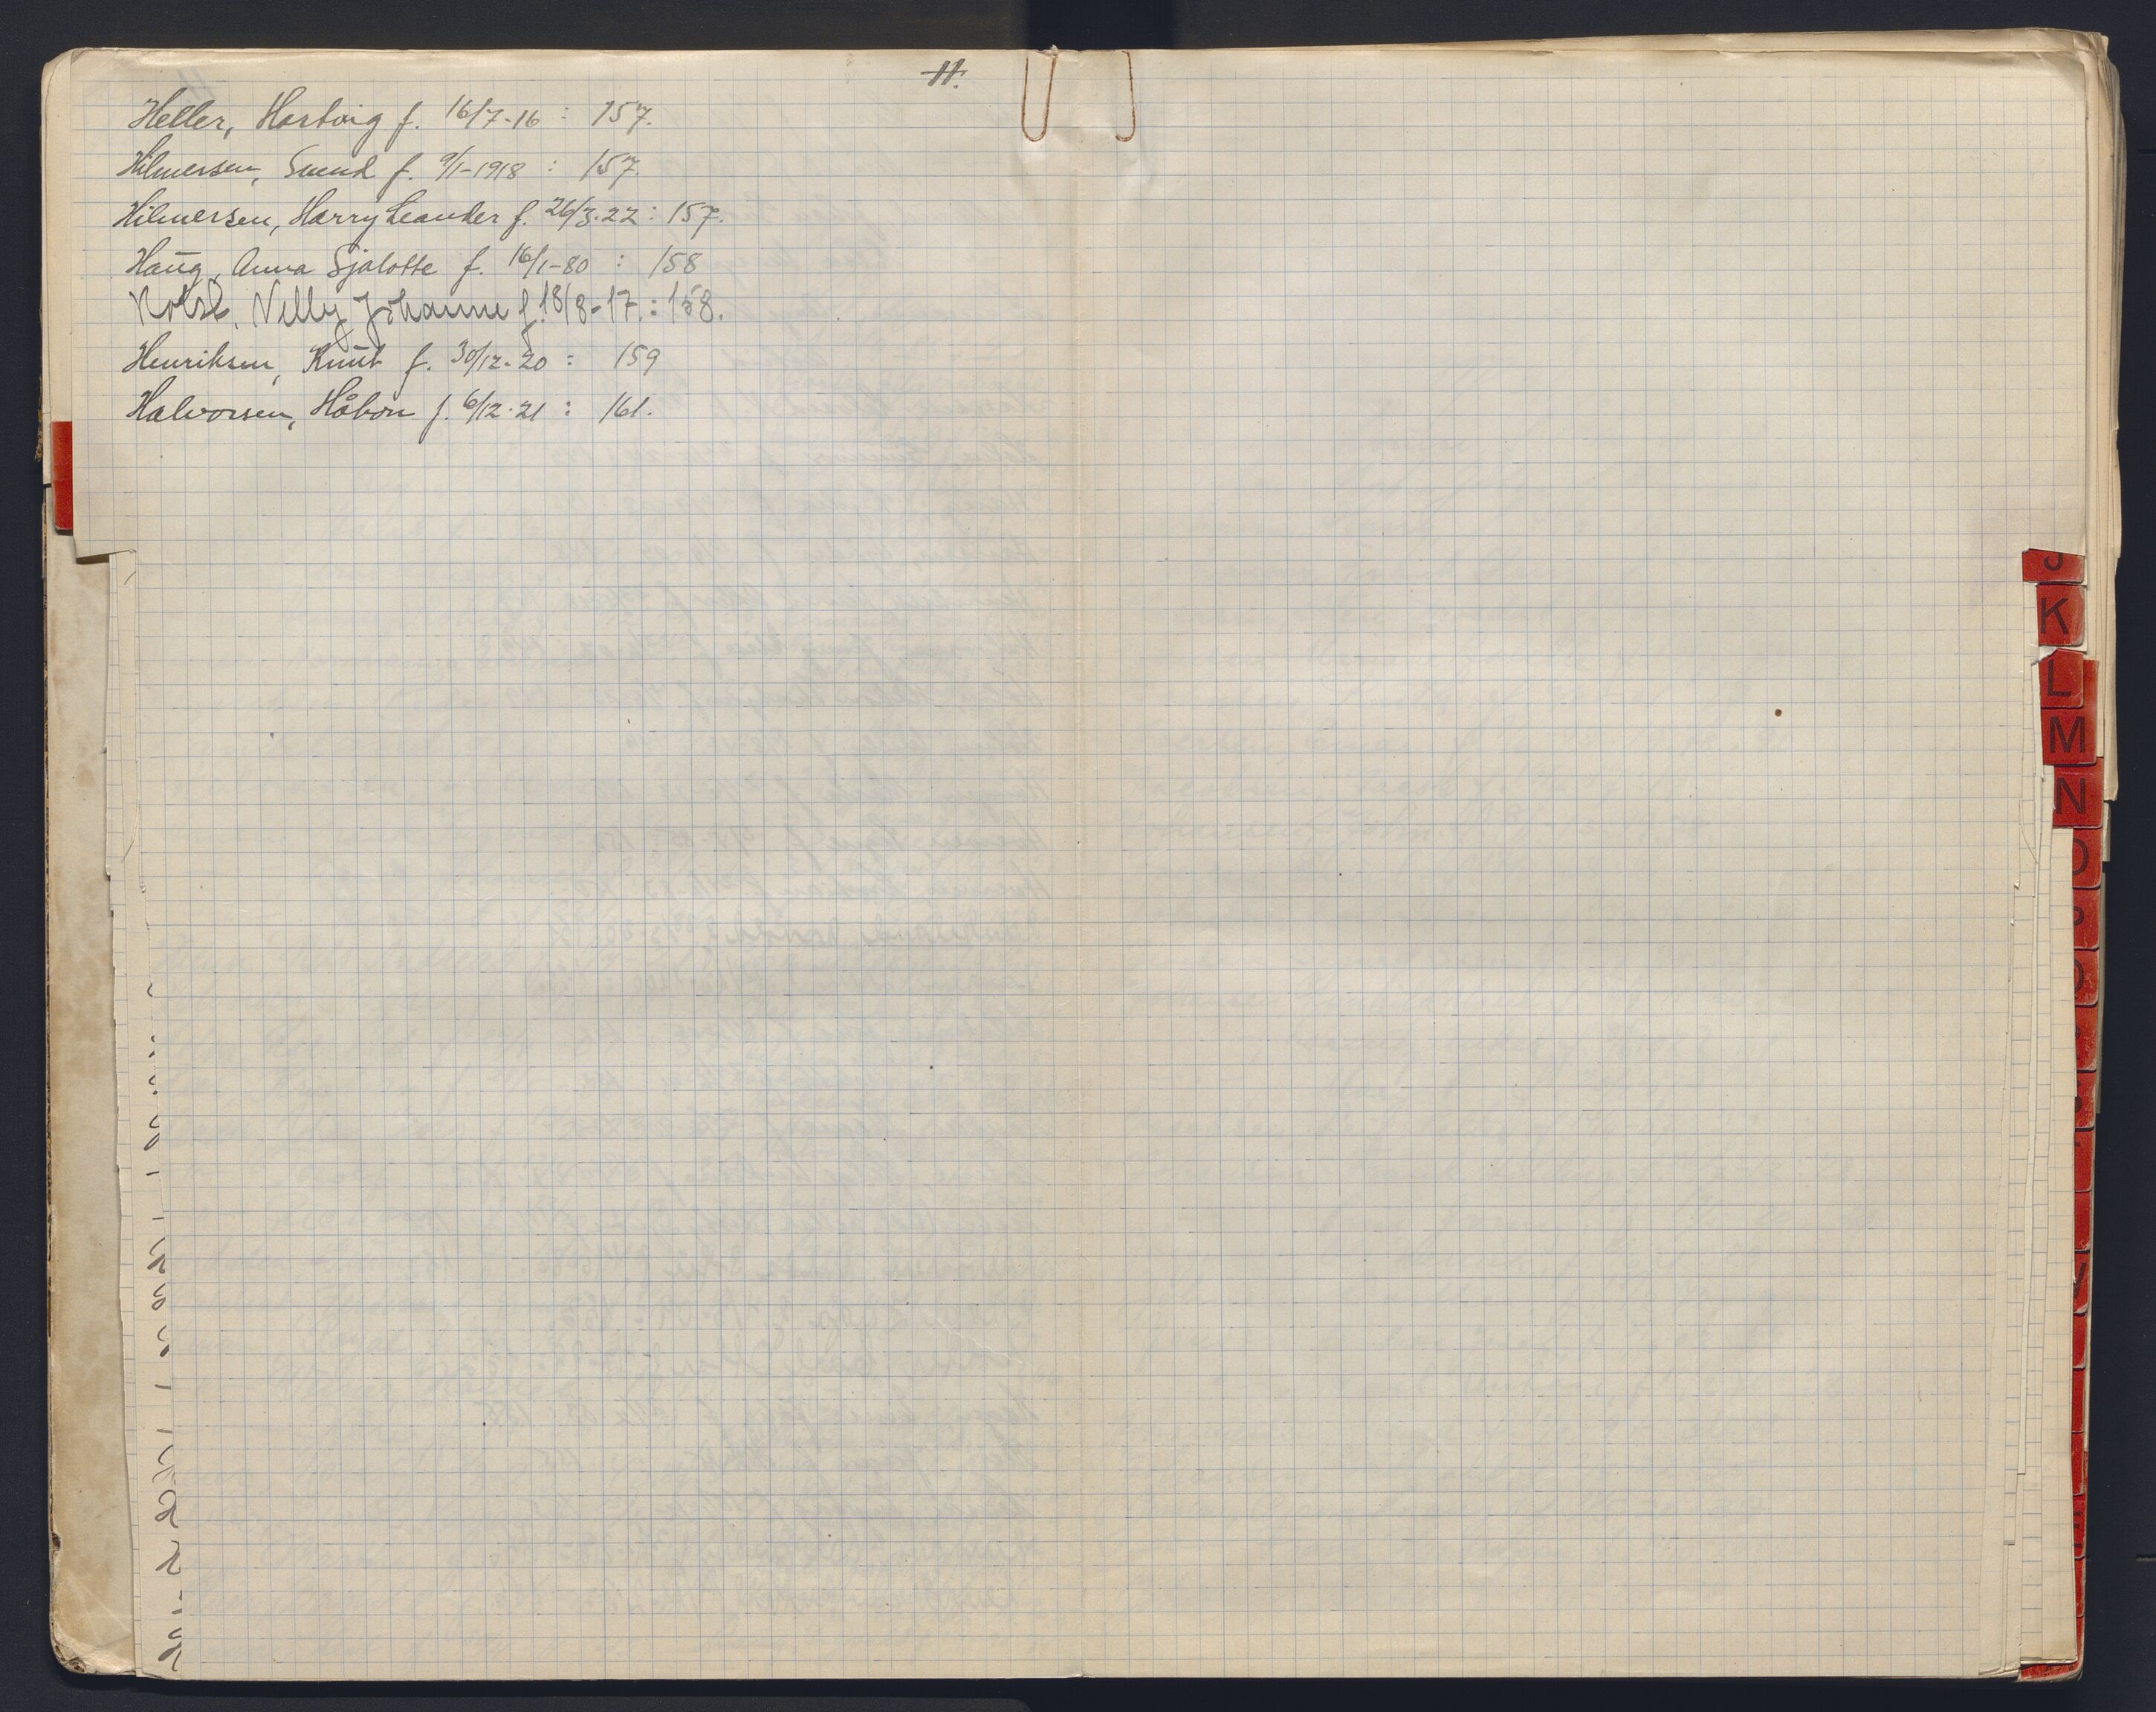 H.
Heller, Hartvig f. 16/7-16 : 157.
Hilmersen, Svend f. 9/1-1918 : 157.
Hilmersen, Harry Leander f. 26/3-22 : 157.
Haug, Anna Sjalotte f. 16/1-80 : 158
Nelly Johanne f. 18/8-17. : 158.
Henriksen, Knut f. 30/12-20 : 159
Halvorsen, Håkon f. 6/12-21 : 161.
J
K
L
M
N
O
P